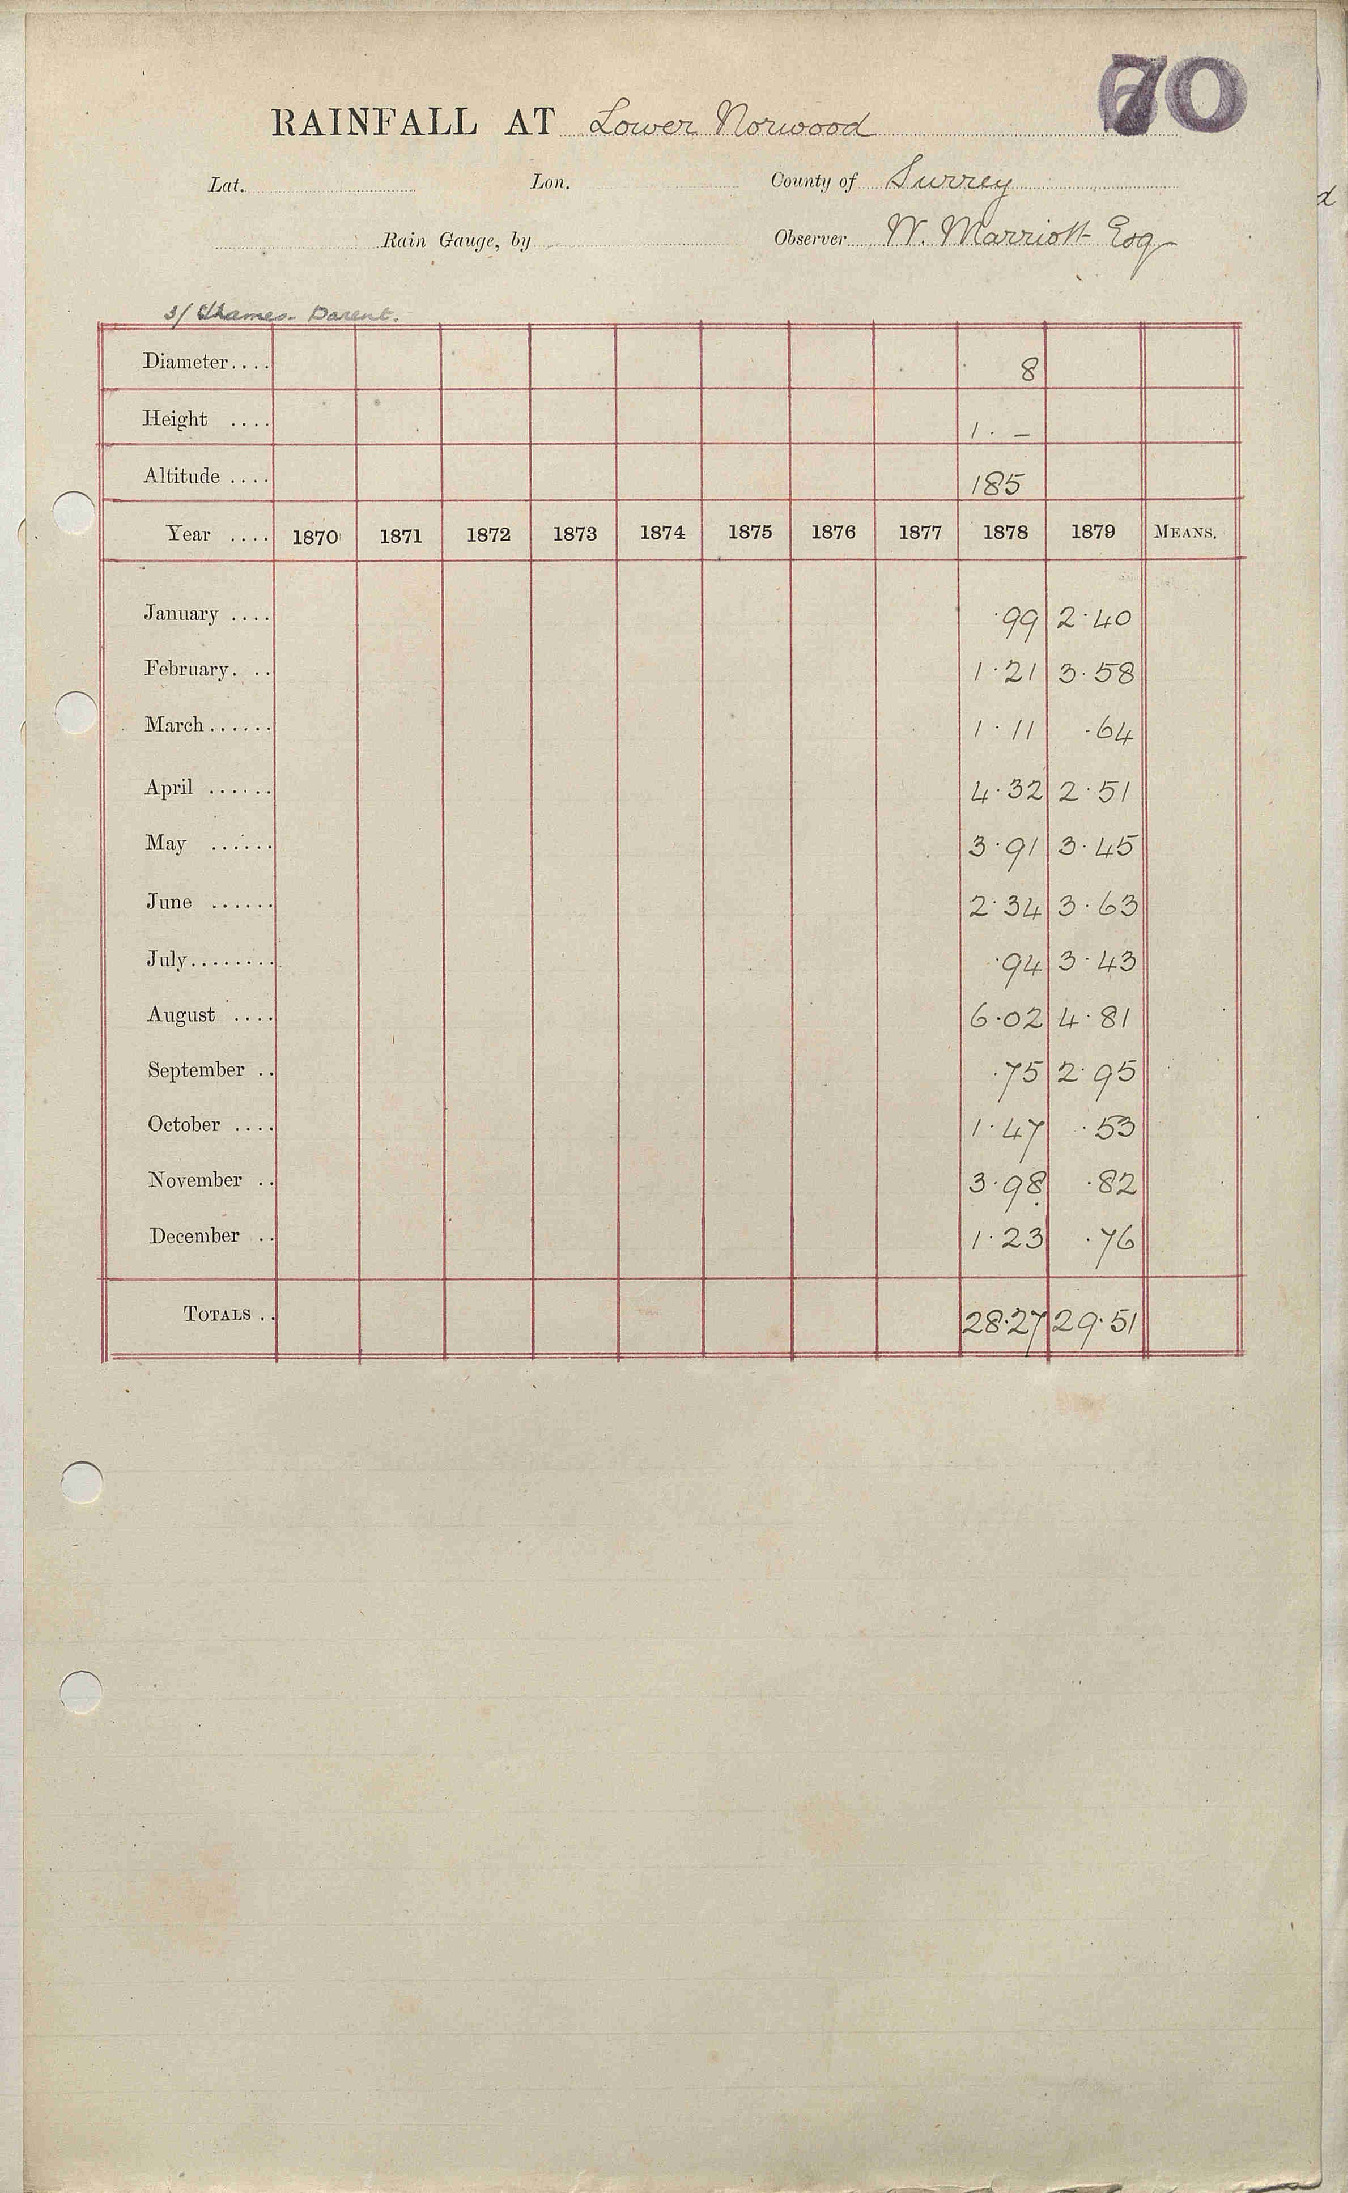 70
RAINFALL AT Lower Norwood
Lat. Lon. County of Surrey
Rain Gauge, by Observer W. Marriott Esq
3/ Thames - Darent.
Diameter.... 8
Height .... 1 · —
Altitude .... 185
Year .... 1870 1871 1872 1873 1874 1875 1876 1877 1878 1879 MEANS.
January .... ·99 2·40
February. .. 1·21 3·58
March...... 1·11 ·64
April ...... 4·32 2·51
May ...... 3·91 3·45
June ...... 2·34 3·63
July........ ·94 3·43
August .... 6·02 4·81
September .. ·75 2·95
October .... 1·47 ·53
November .. 3·98 ·82
December .. 1·23 ·76
TOTALS .. 28·27 29·51